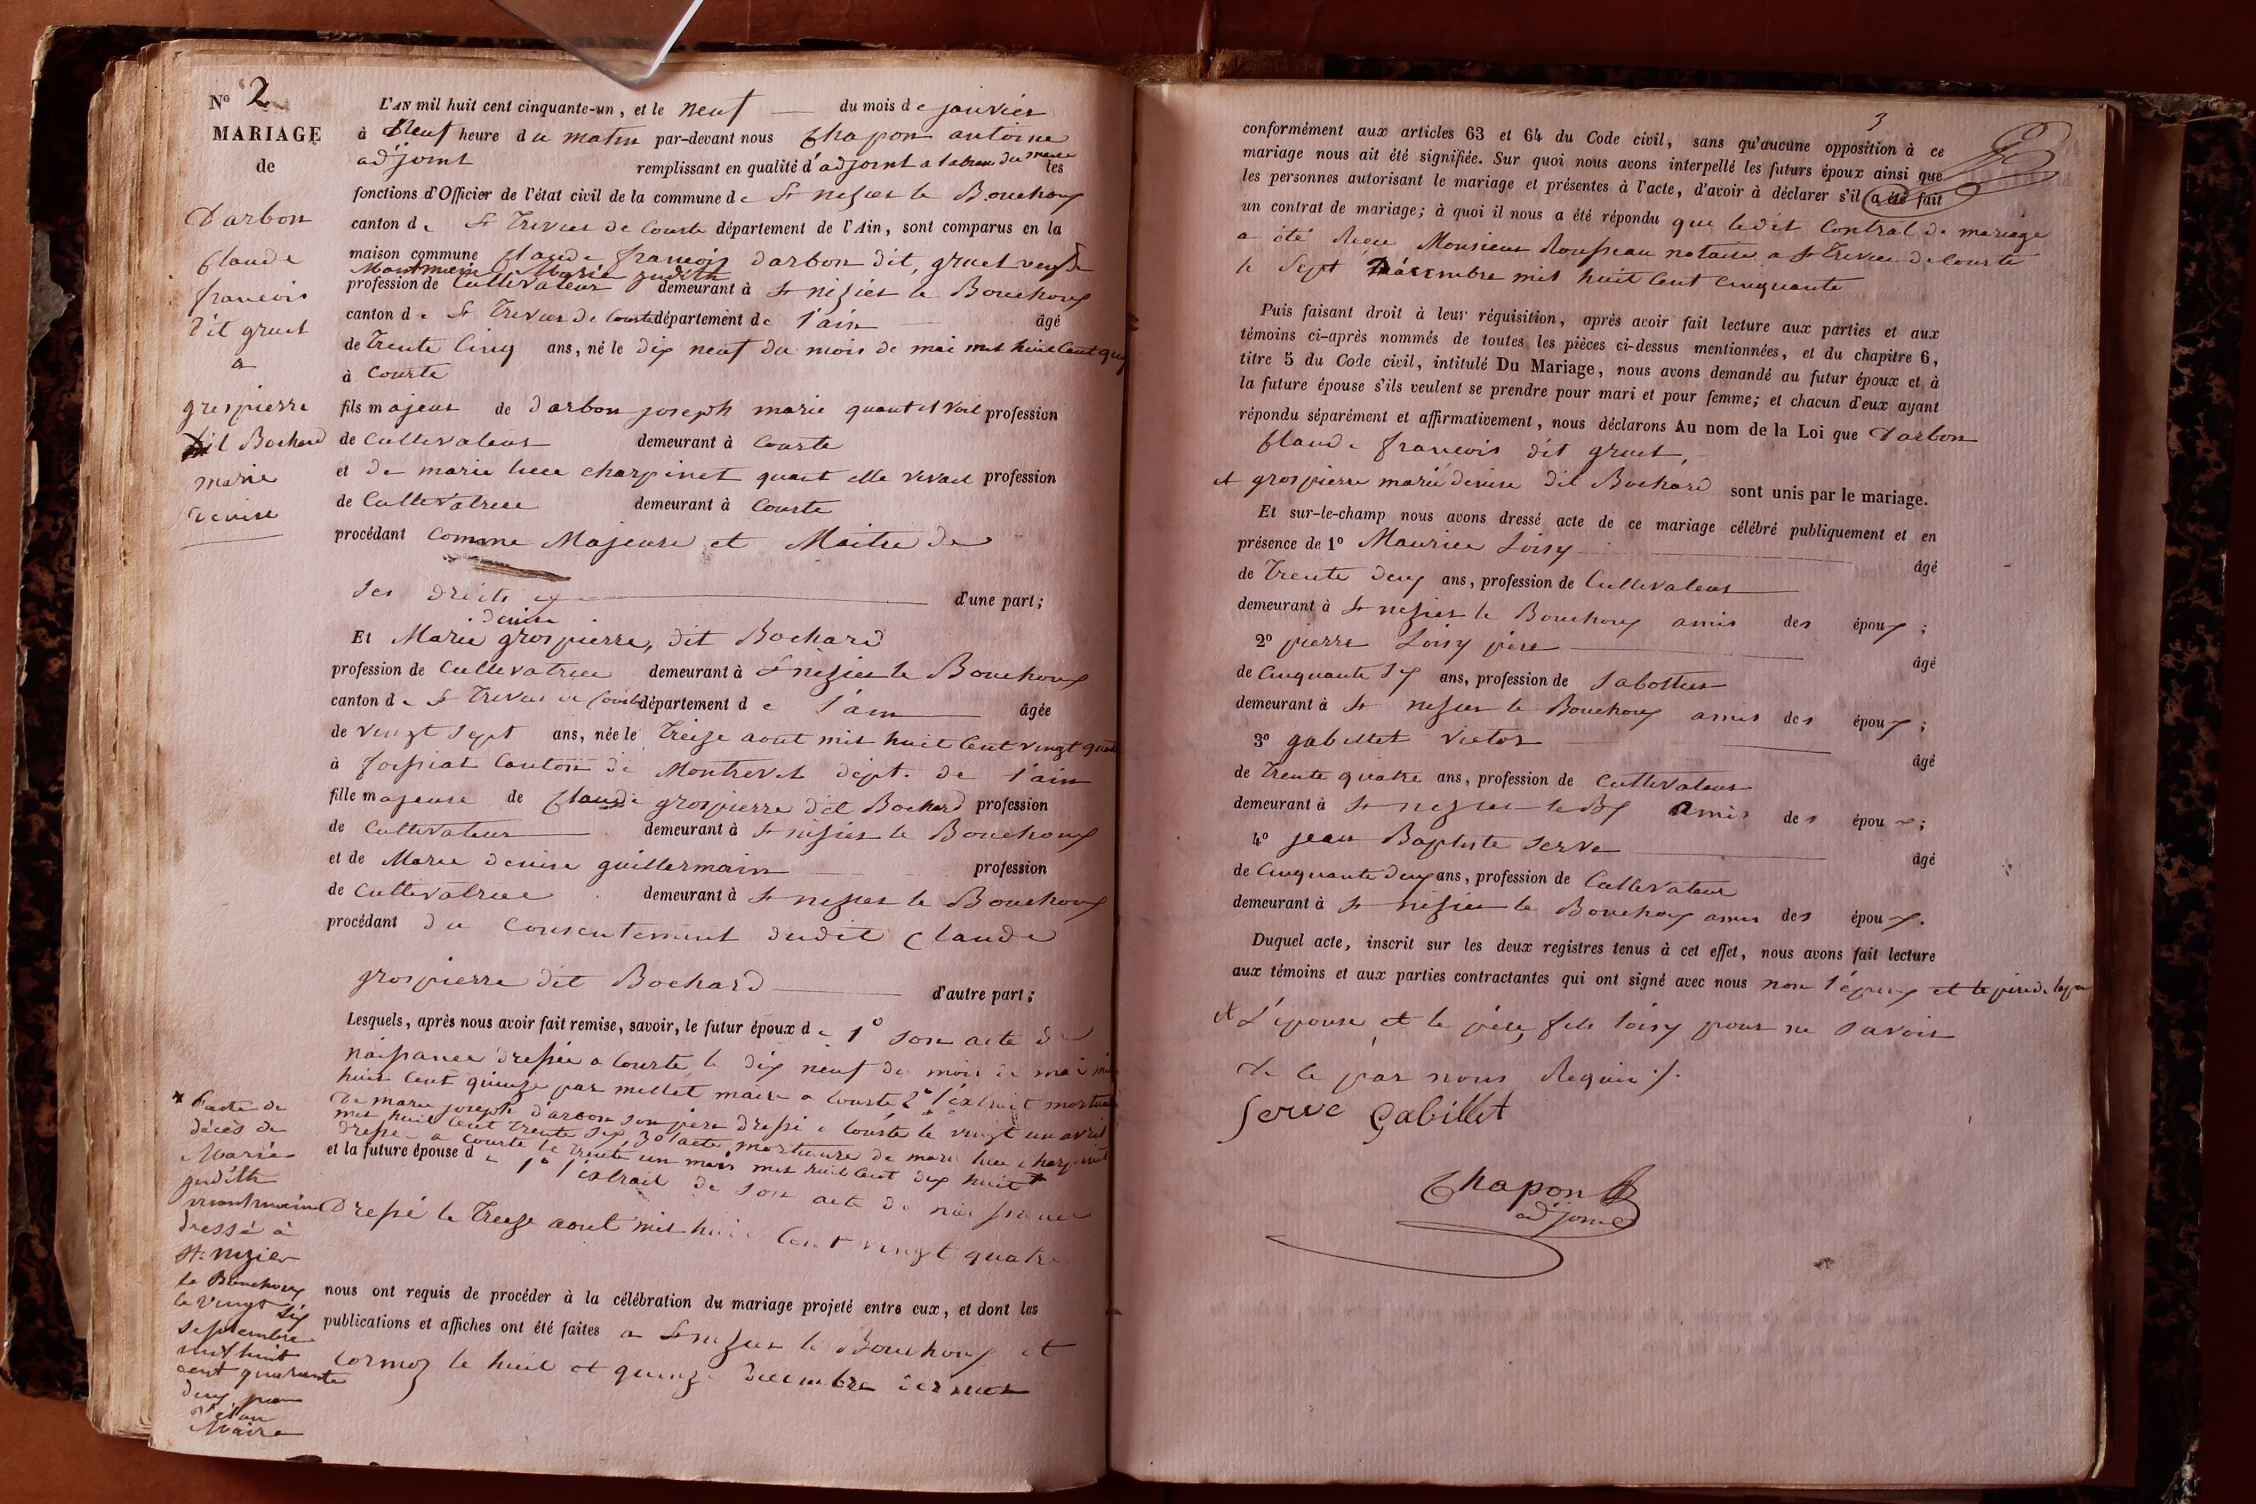 No 2
MARIAGE
de
Darbon
Claude
francois
dit gruet
a
grospierre
dit Bochard
marie
denise
L'AN mil huit cent cinquante-un, et le neuf du mois de janvier
à Neuf heure du matin par-devant nous Chapon antoine
adjoint remplissant en qualité d'adjoint a labsence du maire les
fonctions d'Officier de l'état civil de la commune de St nizier le Bouchoux
canton de St Trivier de Courte département de l'Ain, sont comparus en la
maison commune Claude francois darbon dit, gruet veuf de
Montmain Marie judith
profession de Cultivateur demeurant à St nizier le Bouchoux
canton de St Trivier de Courte département de l'ain âgé
de Trente Cinq ans, né le dix neuf du mois de mai mil huit Cent
à Courte
fils majeur de darbon joseph marie quant il vivait profession
de Cultivateur demeurant à Courte
et de marie luce charpinet quant elle vivait profession
de Cultivatrice demeurant à Courte
procédant Comme Majeure et Maitre de
ses droits d'une part;
denise
Et Marie grospierre, dit Bochard
profession de Cultivatrice demeurant à St nizier le Bouchoux
canton de St Trivier de Courte département de l'ain âgée
de vingt sept ans, née le Treize aout mil huit Cent vingt quatre
à foissiat Canton de Montrevel dépt. de l'ain
fille majeure de Claude grospierre dit Bochard profession
de Cultivateur demeurant à St nizier le Bouchoux
et de Marie denise guillermain profession
de Cultivatrice demeurant à St nizier le Bouchoux
procédant du Consentement dudit Claude
grospierre dit Bochard d'autre part;
Lesquels, après nous avoir fait remise, savoir, le futur époux de 1o son acte de
naissance dressée a Courte le dix neuf du mois de mai mil
huit Cent quinze par millet maire a Courte 2o l'extrait mortuaire
de marie joseph darbon son père dressé a Courte le vingt un avril
mil huit Cent trente six, 3o l'acte mortuaire de marie luce charpinet
dressé a Courte le trente un mars mil huit Cent dix huit
et la future épouse de 1o l'extrait de son acte de naissance
Dressé le Treize aout mil huit Cent vingt quatre
* l'acte de
décès de
Marie
judith
montmain
dressé à
St. nizier
le Bouchoux
le vingt six
septembre
mil huit
cent quarante
deux par
Maire
nous ont requis de procéder à la célébration du mariage projeté entre eux, et dont les
publications et affiches ont été faites a St nizier le Bouchoux et
Cormoz le huit et quinze décembre dernier
3
conformément aux articles 63 et 64 du Code civil, sans qu'aucune opposition à ce
mariage nous ait été signifiée. Sur quoi nous avons interpellé les futurs époux ainsi que
les personnes autorisant le mariage et présentes à l'acte, d'avoir à déclarer s'il a été fait
un contrat de mariage; à quoi il nous a été répondu que ledit Contrat de mariage
a été Reçu Monsieur Rousseau notaire a St Trivier de Courte
le Sept Décembre mil huit Cent cinquante
Puis faisant droit à leur réquisition, après avoir fait lecture aux parties et aux
témoins ci-après nommés de toutes les pièces ci-dessus mentionnées, et du chapitre 6,
titre 5 du Code civil, intitulé Du Mariage, nous avons demandé au futur époux et à
la future épouse s'ils veulent se prendre pour mari et pour femme; et chacun d'eux ayant
répondu séparément et affirmativement, nous déclarons Au nom de la Loi que Darbon
Claude francois dit gruet,
et grospierre marie denise dit Bochard sont unis par le mariage.
Et sur-le-champ nous avons dressé acte de ce mariage célébré publiquement et en
présence de 1o Maurice Loisy âgé
de Trente deux ans, profession de Cultivateur
demeurant à St nizier le Bouchoux amis des époux;
2o pierre Loisy père âgé
de Cinquante six ans, profession de Sabottier
demeurant à St nizier le Bouchoux amis des époux;
3o gabillet victor âgé
de Trente quatre ans, profession de Cultivateur
demeurant à St nizier le Bx amis des époux;
4o jean Baptiste Serve âgé
de Cinquante deux ans, profession de Cultivateur
demeurant à St nizier le Bouchoux amis des époux.
Duquel acte, inscrit sur les deux registres tenus à cet effet, nous avons fait lecture
aux témoins et aux parties contractantes qui ont signé avec nous non l'époux et le père de
et L'épouse et le père, fils loisy pour ne savoir
de ce par nous Requis
Serve Gabillet
Chapon
adjoint